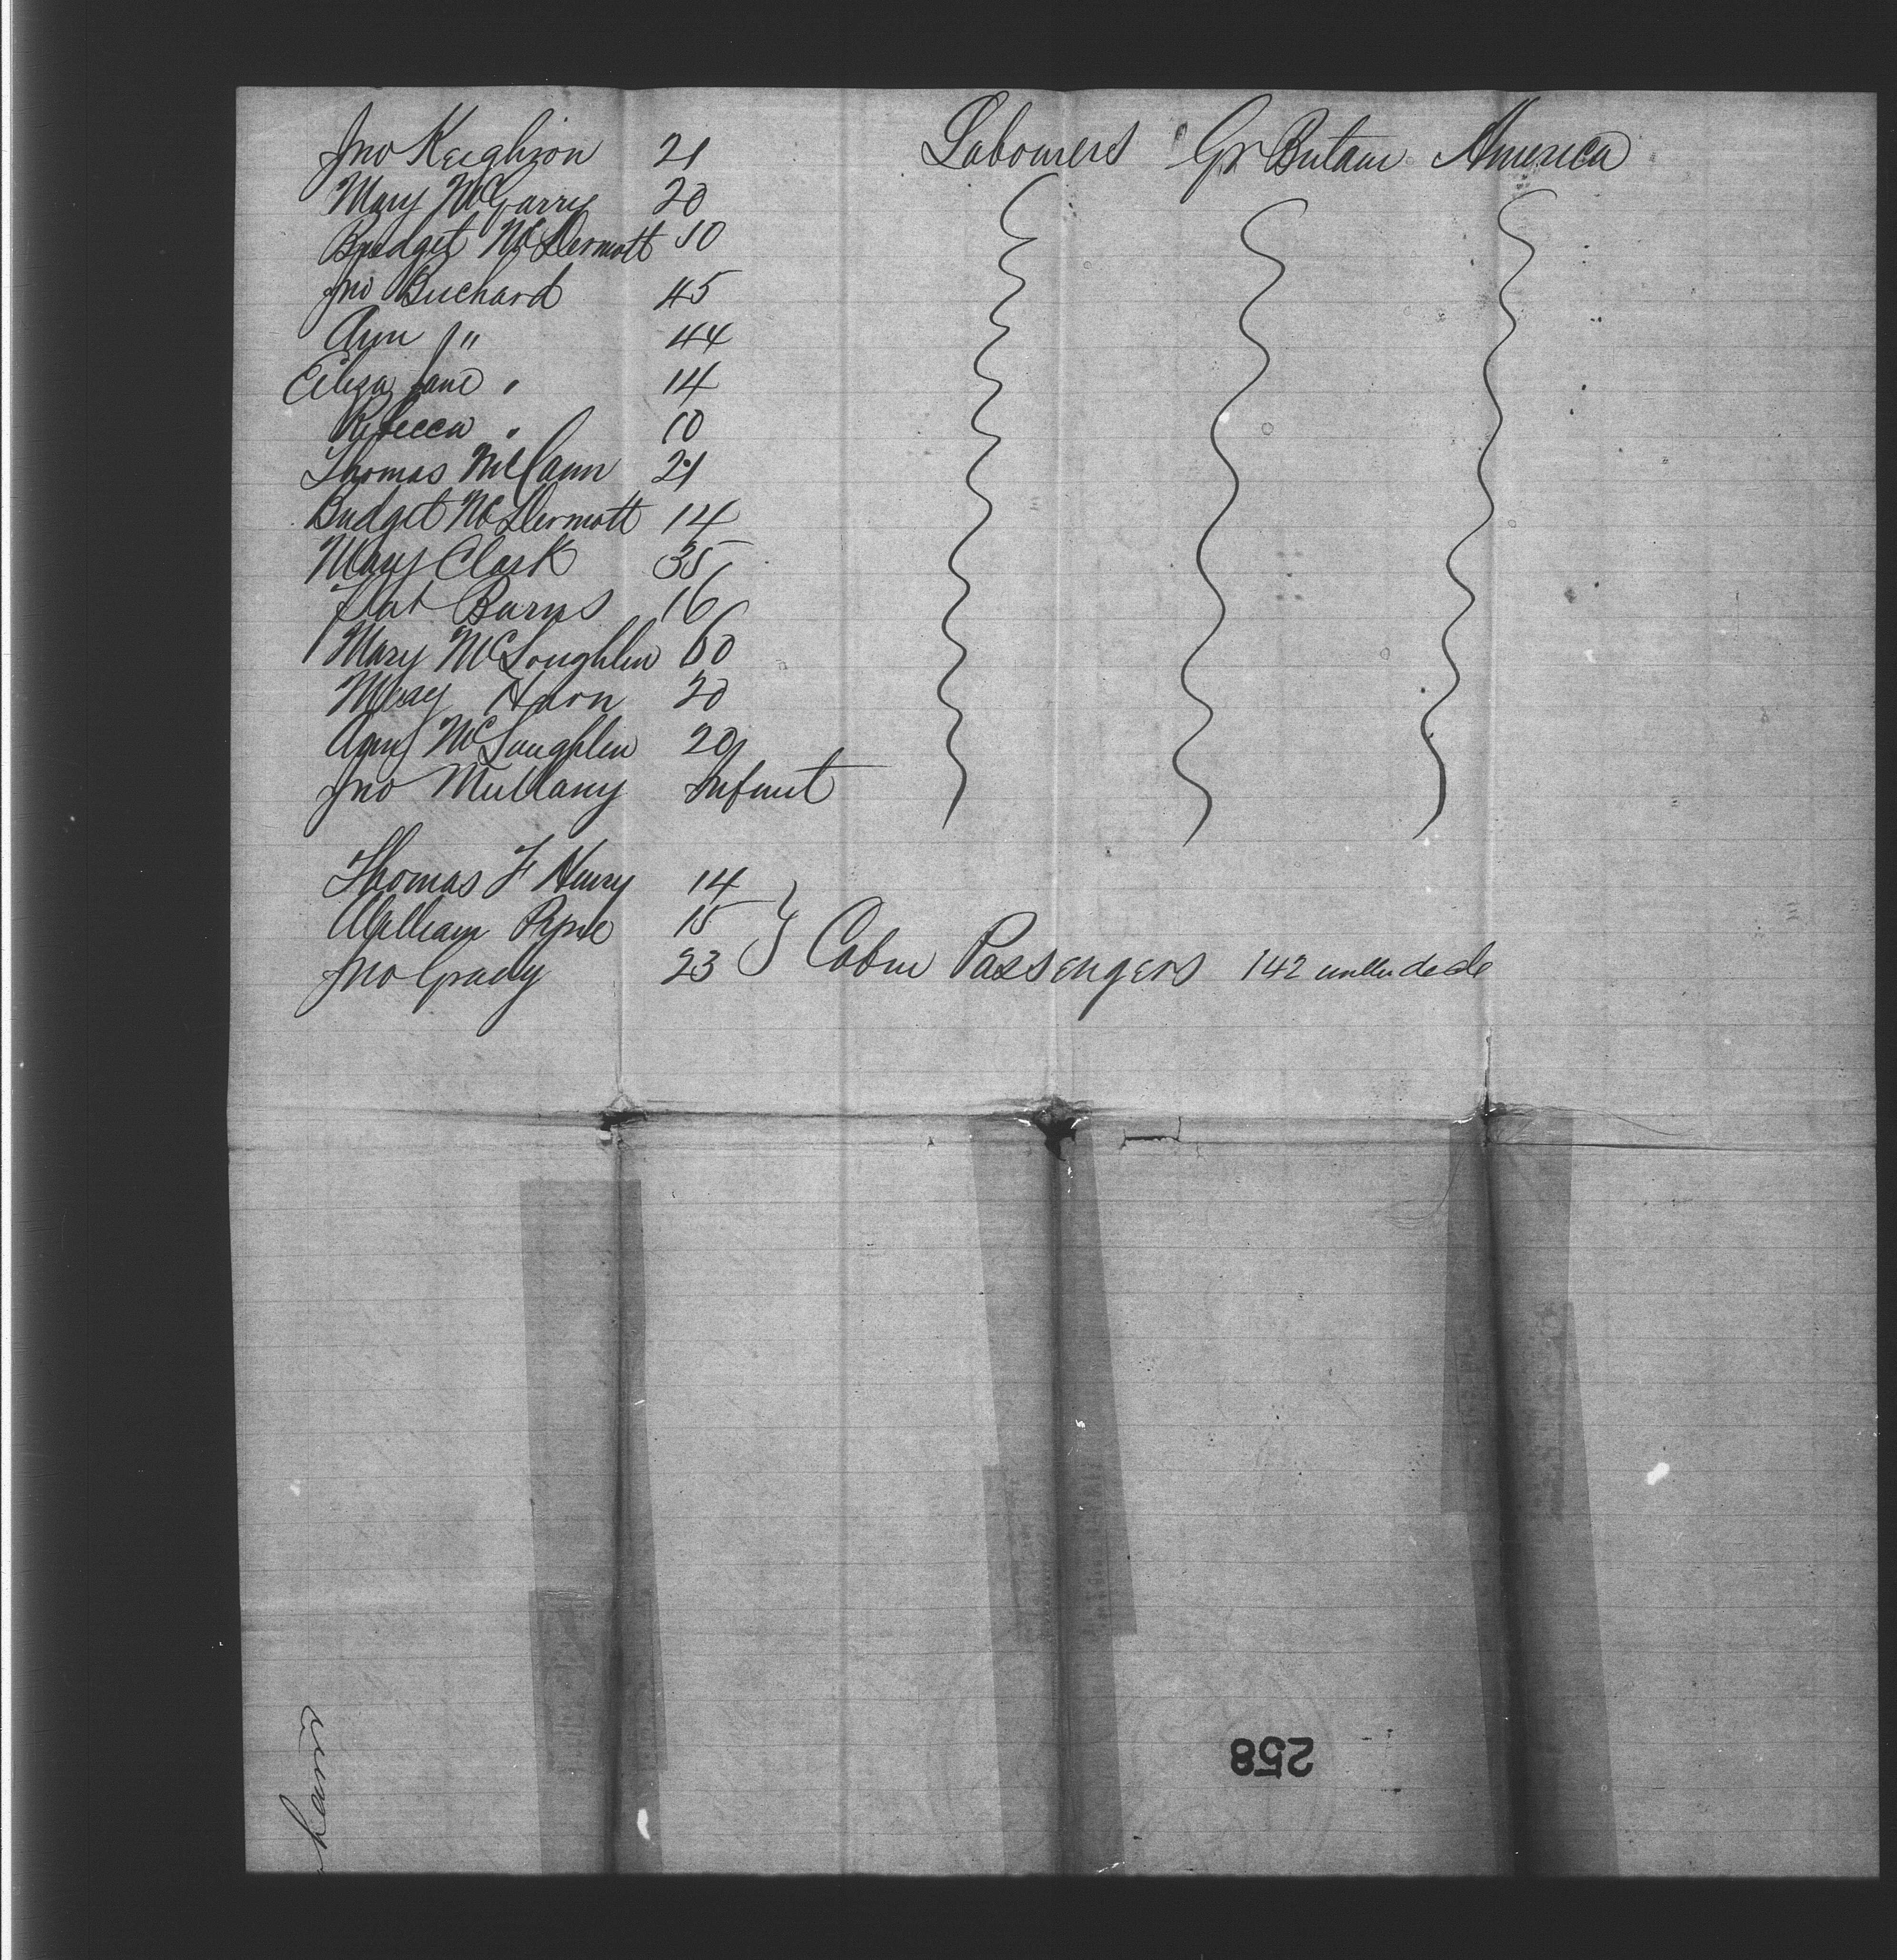 Jno Keighron 21 Labourers Gr Britain America
Mary McGarry 20
Bridget McDermott 10
Jno Buchard 45
Ann " 44
Eliza Jane " 14
Rebecca " 10
Thomas McCann 21
Bridget McDermott 14
Mary Clark 35
Pat Burns 16
Mary McLoughlin 60
Mary Harn 20
Ann McLaughlin 20
Jno Mullany Infant
Thomas F Henry 14
William Pyne 15
Jno Grady 23 } Cabin Passengers 142 under deck
258